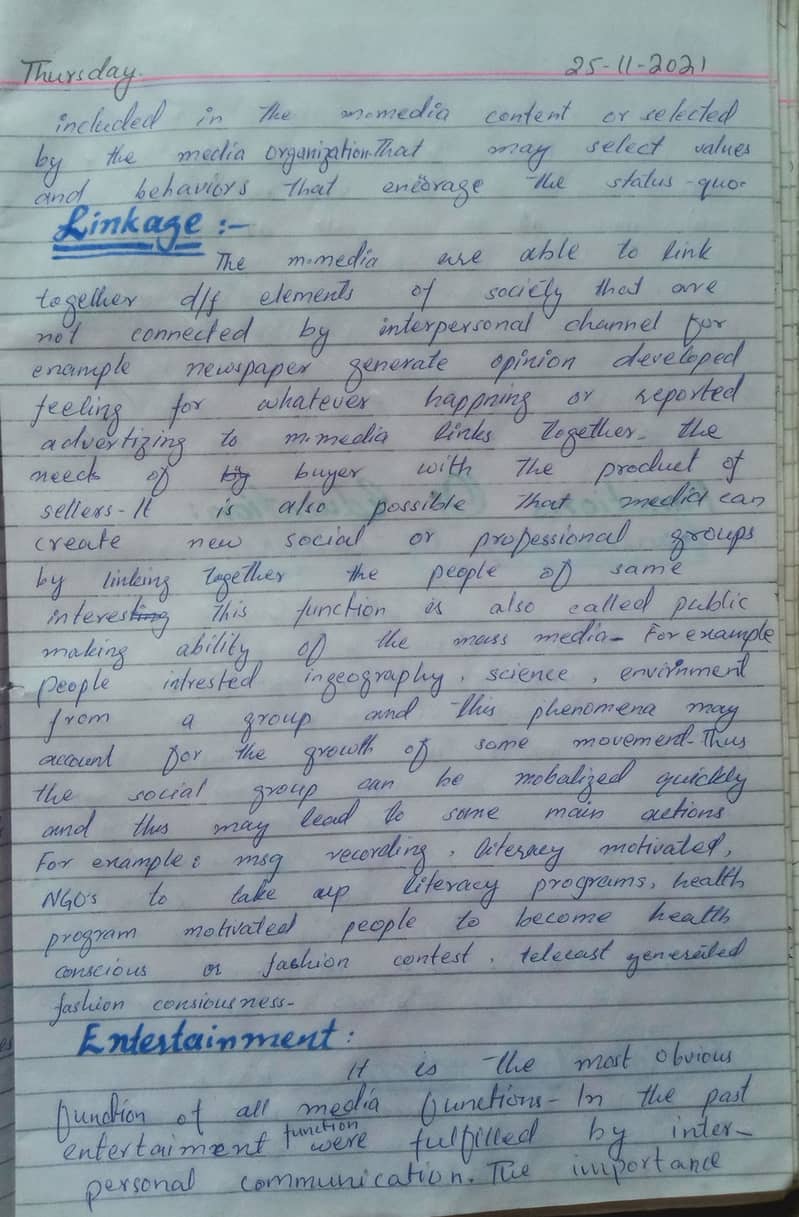 Thursday. 25-11-2021
included in the m.media content or selected
by the media organization. That may select values
and behaviors that encorage the status-quo.
Linkage :-
The m.media are able to link
together d/f elements of society that are
not connected by interpersonal channel for
example newspaper generate opinion developed
feeling for whatever happning or reported
advertizing to m.media links together. the
needs of buyer with the product of
sellers- It is also possible that media can
create new social or professional groups
by linking together the people of same
interest This function is also called public
making ability of the mass media- For example
people intrested in geography, science, envirnment
from a group and this phenomena may
account for the growth of some movement- Thus
the social group can be mobalized quickly
and thus may lead to some main actions
For example: msg recording, literacy motivated,
NGO's to take up literacy programs, health
program motivated people to become health
conscious or fashion contest, telecast generated
fashion consiousness-
Entertainment :
It is the most obvious
function of all media functions- In the past
entertaiment function were fulfilled by inter-
personal communication. The importance